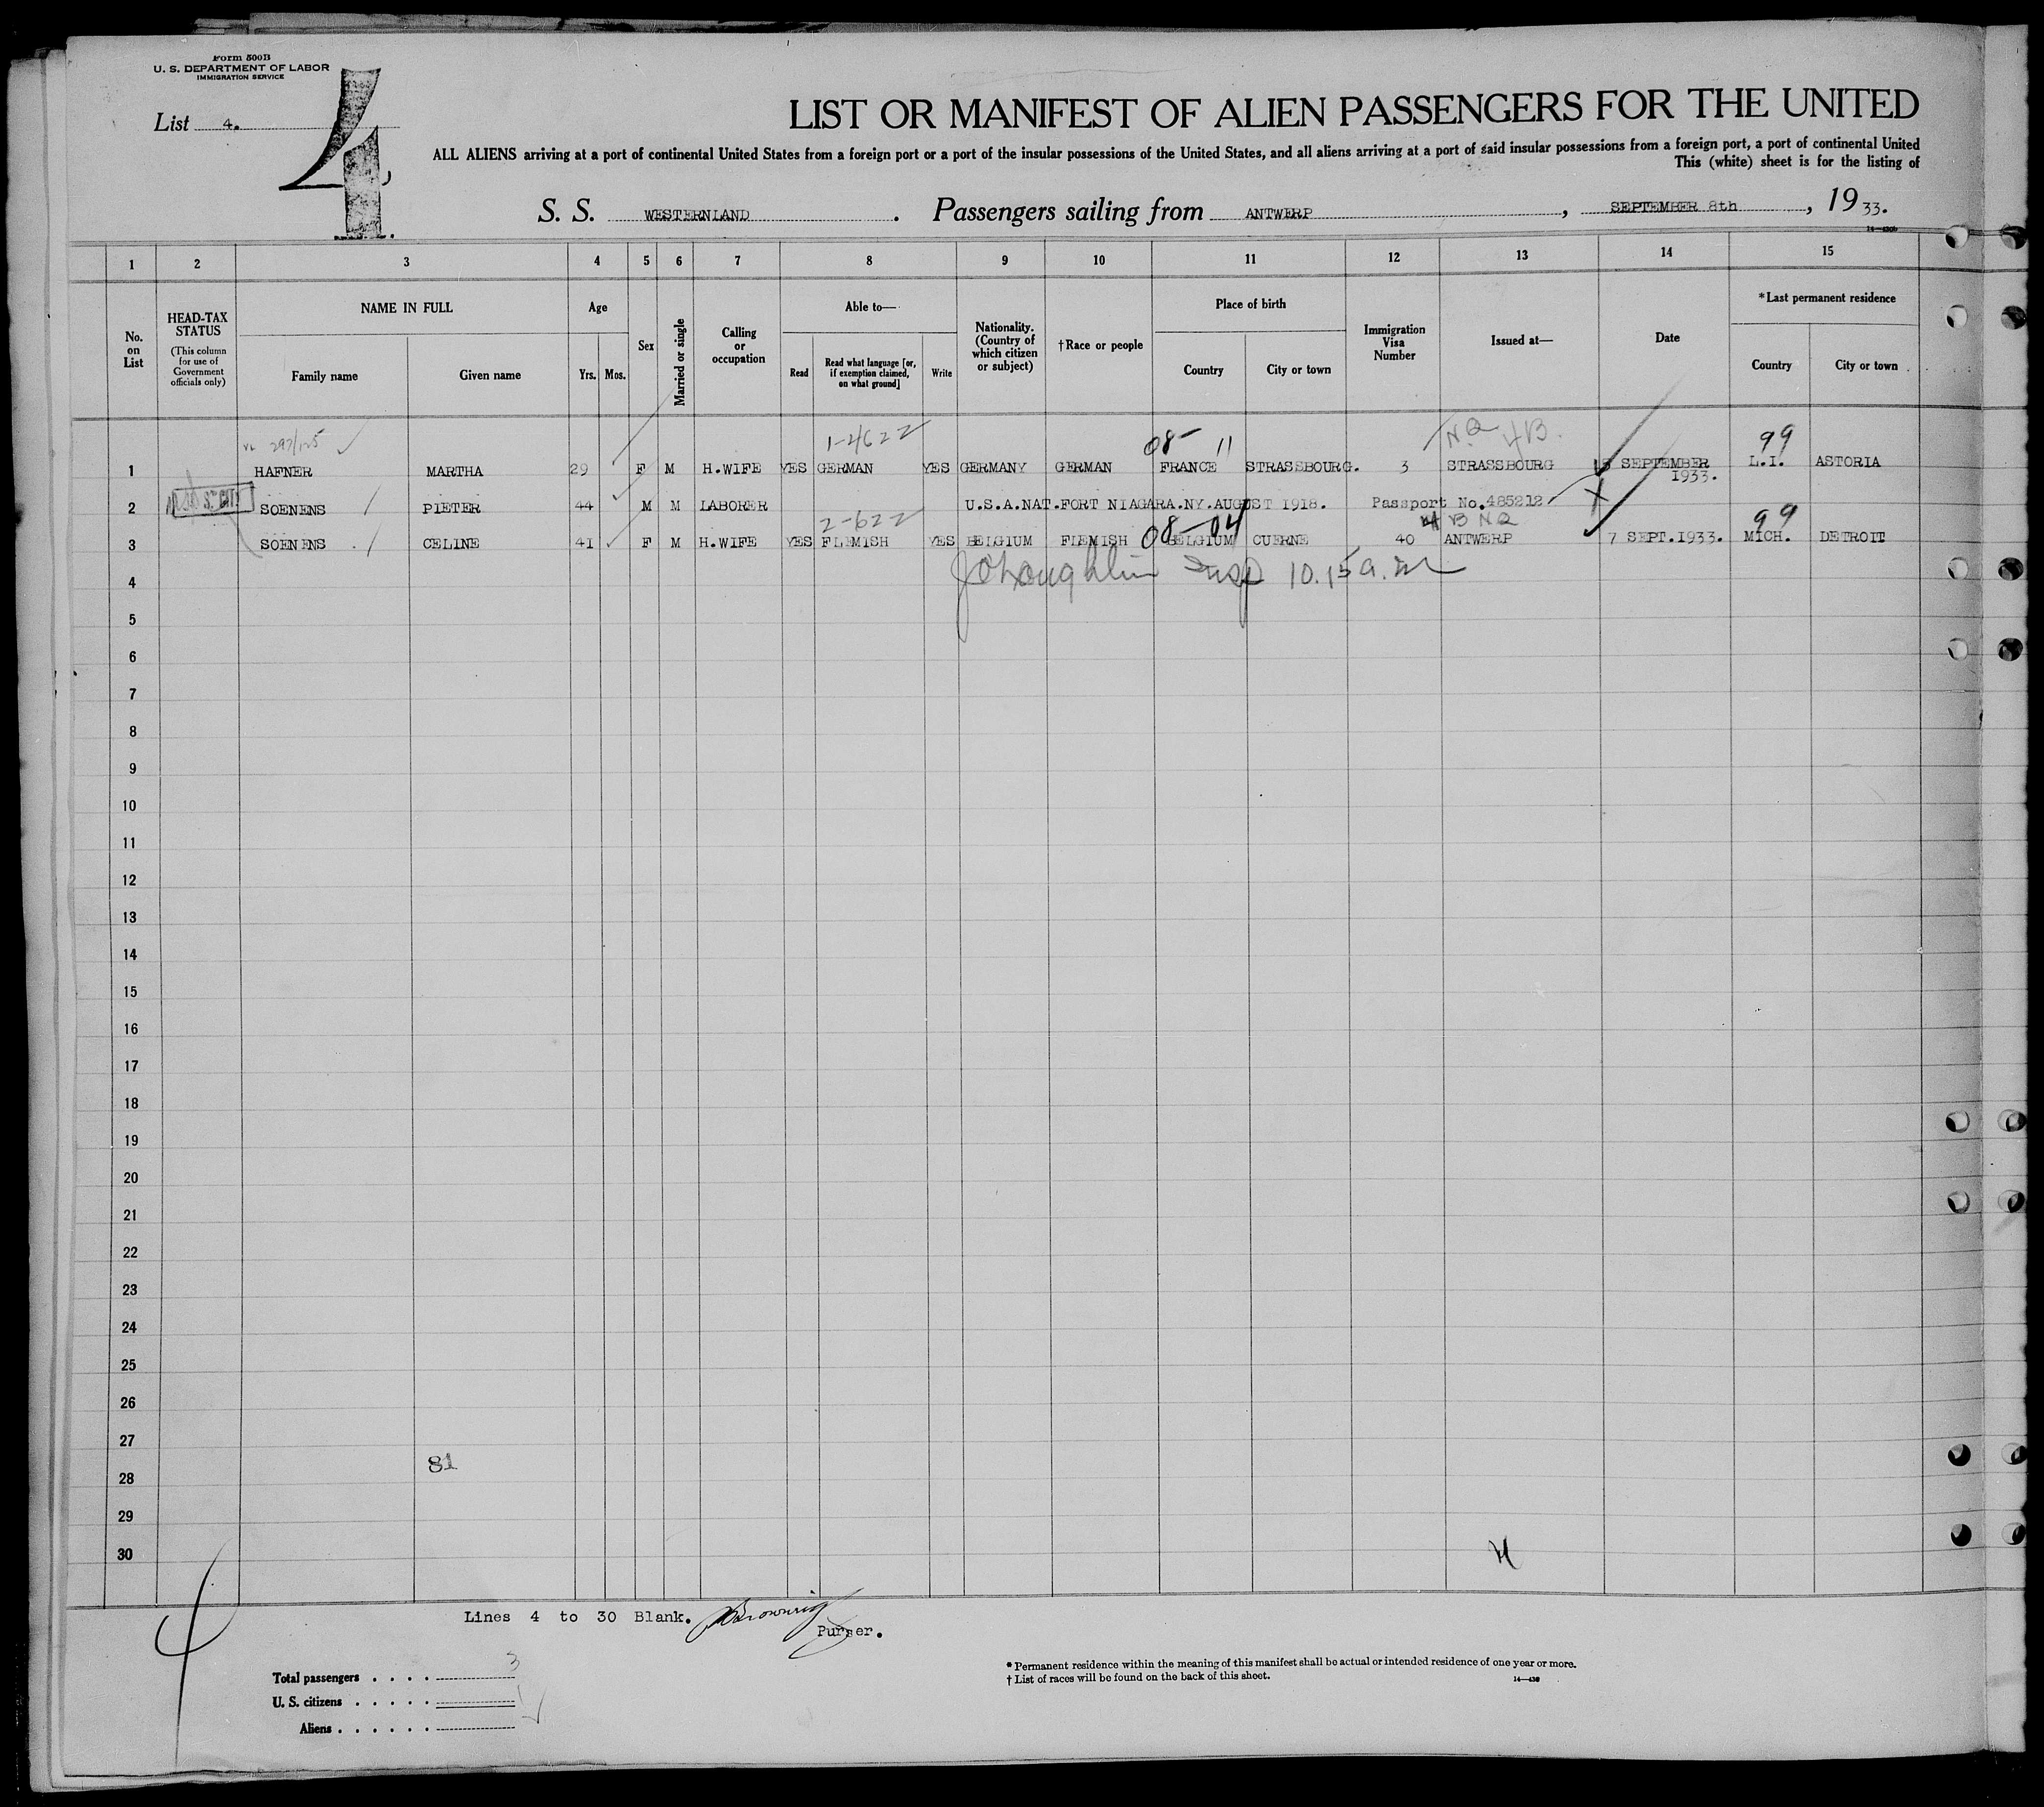 Form 500B
U. S. DEPARTMENT OF LABOR
IMMIGRATION SERVICE
List 4.
4
LIST OR MANIFEST OF ALIEN PASSENGERS FOR THE UNITED
ALL ALIENS arriving at a port of continental United States from a foreign port or a port of the insular possessions of the United States, and all aliens arriving at a port of said insular possessions from a foreign port, a port of continental United
This (white) sheet is for the listing of
S. S. WESTERNLAND. Passengers sailing from ANTWERP, SEPTEMBER 8th, 1933.
1 2 3 4 5 6 7 8 9 10 11 12 13 14 15
No. on List
HEAD-TAX STATUS
(This column for use of Government officials only)
NAME IN FULL
Family name Given name
Age
Yrs. Mos.
Sex
Married or single
Calling or occupation
Able to—
Read
Read what language [or, if exemption claimed, on what ground]
Write
Nationality. (Country of which citizen or subject)
†Race or people
Place of birth
Country City or town
Immigration Visa Number
Issued at—
Date
*Last permanent residence
Country City or town
297/125 1-4622 08- 11 N.Q 4B. 99
1 HAFNER MARTHA 29 F M H.WIFE YES GERMAN YES GERMANY GERMAN FRANCE STRASSBOURG. 3 STRASSBOURG SEPTEMBER 1933. L.I. ASTORIA
2 SOENENS PIETER 44 M M LABORER U.S.A.NAT.FORT NIAGARA.NY.AUGUST 1918. Passport No.485212 X
2-622 08-04 4 B NQ 99
3 SOENENS CELINE 41 F M H.WIFE YES FLEMISH YES BELGIUM FLEMISH BELGIUM CUERNE 40 ANTWERP 7 SEPT.1933. MICH. DETROIT
JOLoughlin Insp 10.15 a.m
4
5
6
7
8
9
10
11
12
13
14
15
16
17
18
19
20
21
22
23
24
25
26
27
81
28
29
30
Lines 4 to 30 Blank.
Purser.
Total passengers . . . . 3
U. S. citizens . . . . . 1
Aliens . . . . . .
* Permanent residence within the meaning of this manifest shall be actual or intended residence of one year or more.
† List of races will be found on the back of this sheet.